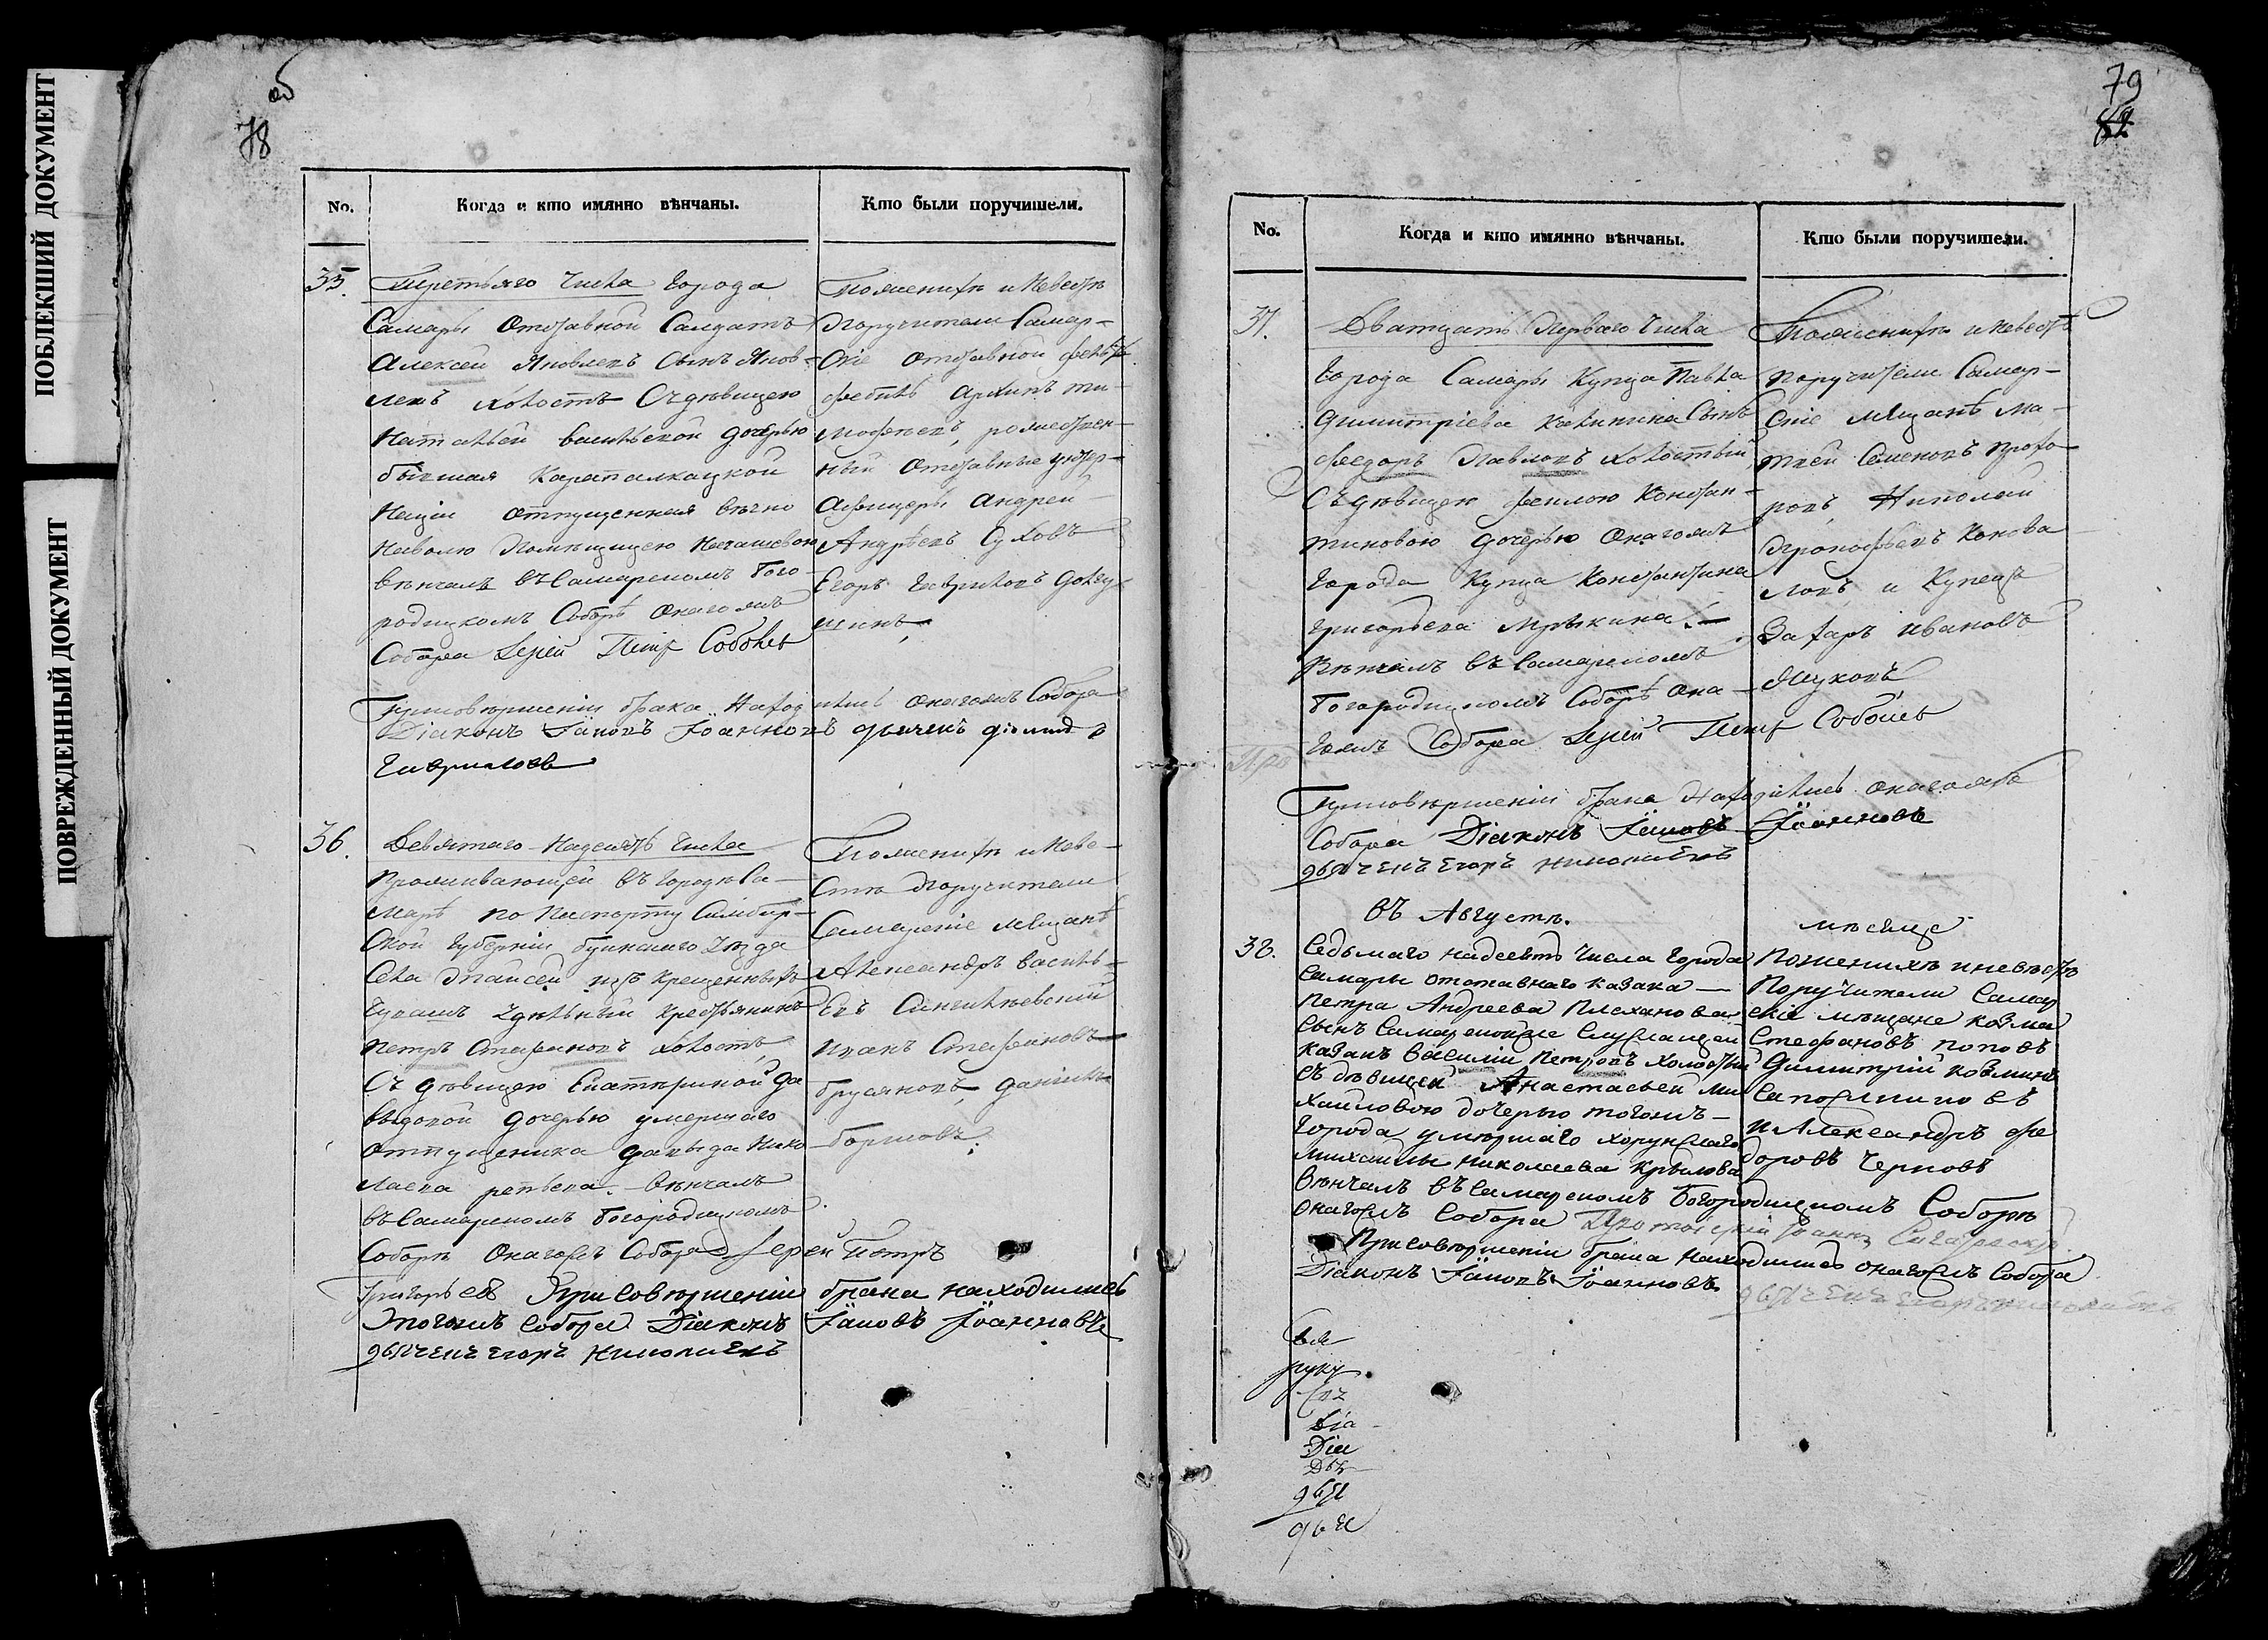 ПОБЛЕКШИЙ ДОКУМЕНТ
ПОВРЕЖДЕННЫЙ ДОКУМЕНТ
об
78
No.
Когда и кто имянно вѣнчаны.
Кто были поручители.
35.
Третьяго числа города
Самары отставной Салдатъ
Алексей Яковлевъ сынъ Яков-
левъ холостъ Съ дѣвицею
Натальей Васильевой дочерью
бывшая Каракалпацкой
Нации отпущенная вечно
Наволю Помещицею
венчалъ въ Самарскомъ Бого-
родицкомъ Соборѣ онагожъ
Собора Іерей Петр Соболев
По женихѣ и Невестѣ
Поручители Самар-
скіе отставной
Архипъ Ти-
мофеевъ,
ный отставные унтер-
Афицеры Андрей
Андреевъ Суховъ
Егоръ Гавриловъ
При совершеніи брака Находились онагожъ Собора
Діаконъ Іаковъ Іоанновъ дьячекъ
Гавриловъ
36.
Девятаго Надесять числа
Проживающей въ городе Са-
маре по Паспорту Симбир-
ской Губерніи Буинскаго уезда
Села изъ крещенныхъ
Чувашъ Удельный крестьянинъ
Петръ Стефановъ холостъ,
Съ девицею Екатериной Да-
выдовой дочерью умершаго
отпущеника Давыда Нико-
лаева Репьева. венчалъ
въ Самарскомъ Богородицкомъ
Соборе Онагожъ Собора Іерей Петръ
Григорьев При совершеніи брака находились
Тогожъ Собора Діаконъ Іаковъ Іоанновъ
дьячекъ Егоръ Николаевъ
По женихе и Неве-
сте Поручители
Самарскіе мещане
Александръ Василь-
евъ Сингилеевский
Иванъ Стефановъ
Брусяновъ,
79
No.
Когда и кто имянно вѣнчаны.
Кто были поручители.
37.
Дватцать Перваго числа
Города Самары Купца Павла
Димитріева сынъ
Федоръ Павловъ холостый
Съ девицею Феклою Констан-
тиновою дочерью Онагожъ
Города Купца Константина
Григорьева
Венчалъ въ Самарскомъ
Богородицкомъ Соборѣ она-
гожъ Собора Іерей Петр Соболев
По женихѣ и невестѣ
Поручители Самар-
скіе мещане Мат-
вей Семеновъ Прохо-
ровъ, Николай
Прокофьевъ Конова
ловъ и Купецъ
Захаръ Ивановъ
При совершеніи брака Находились онагожъ
Собора Діаконъ Іаковъ Іоанновъ
дьячекъ Егоръ Николаевъ
въ Августѣ.
месяце
38.
Седьмаго надесеть числа города
Самары отставнаго казака
Петра Андреева Плеханова
сынъ Самарской же служащей
казакъ Василій Петровъ холостый
съ девицей Анастасьей Ми
хайловою дочерью тогожъ
города умершаго хорунжаго
Михаилы Николаева Крылова
Венчалъ въ Самарскомъ Богородицкомъ Соборѣ
онагожъ Собора Протоіерей Іоаннъ
По женихѣ и невестѣ
Поручители Самар
скіе мещане козма
Стефановъ поповъ
Димитрій козминъ
Сапожниковъ
и Александръ фе
доровъ Черновъ
При совершеніи брака находились онагожъ Собора
Діаконъ Іаковъ Іоанновъ
дьячекъ Егоръ Николаевъ
руку
Діа
Діа